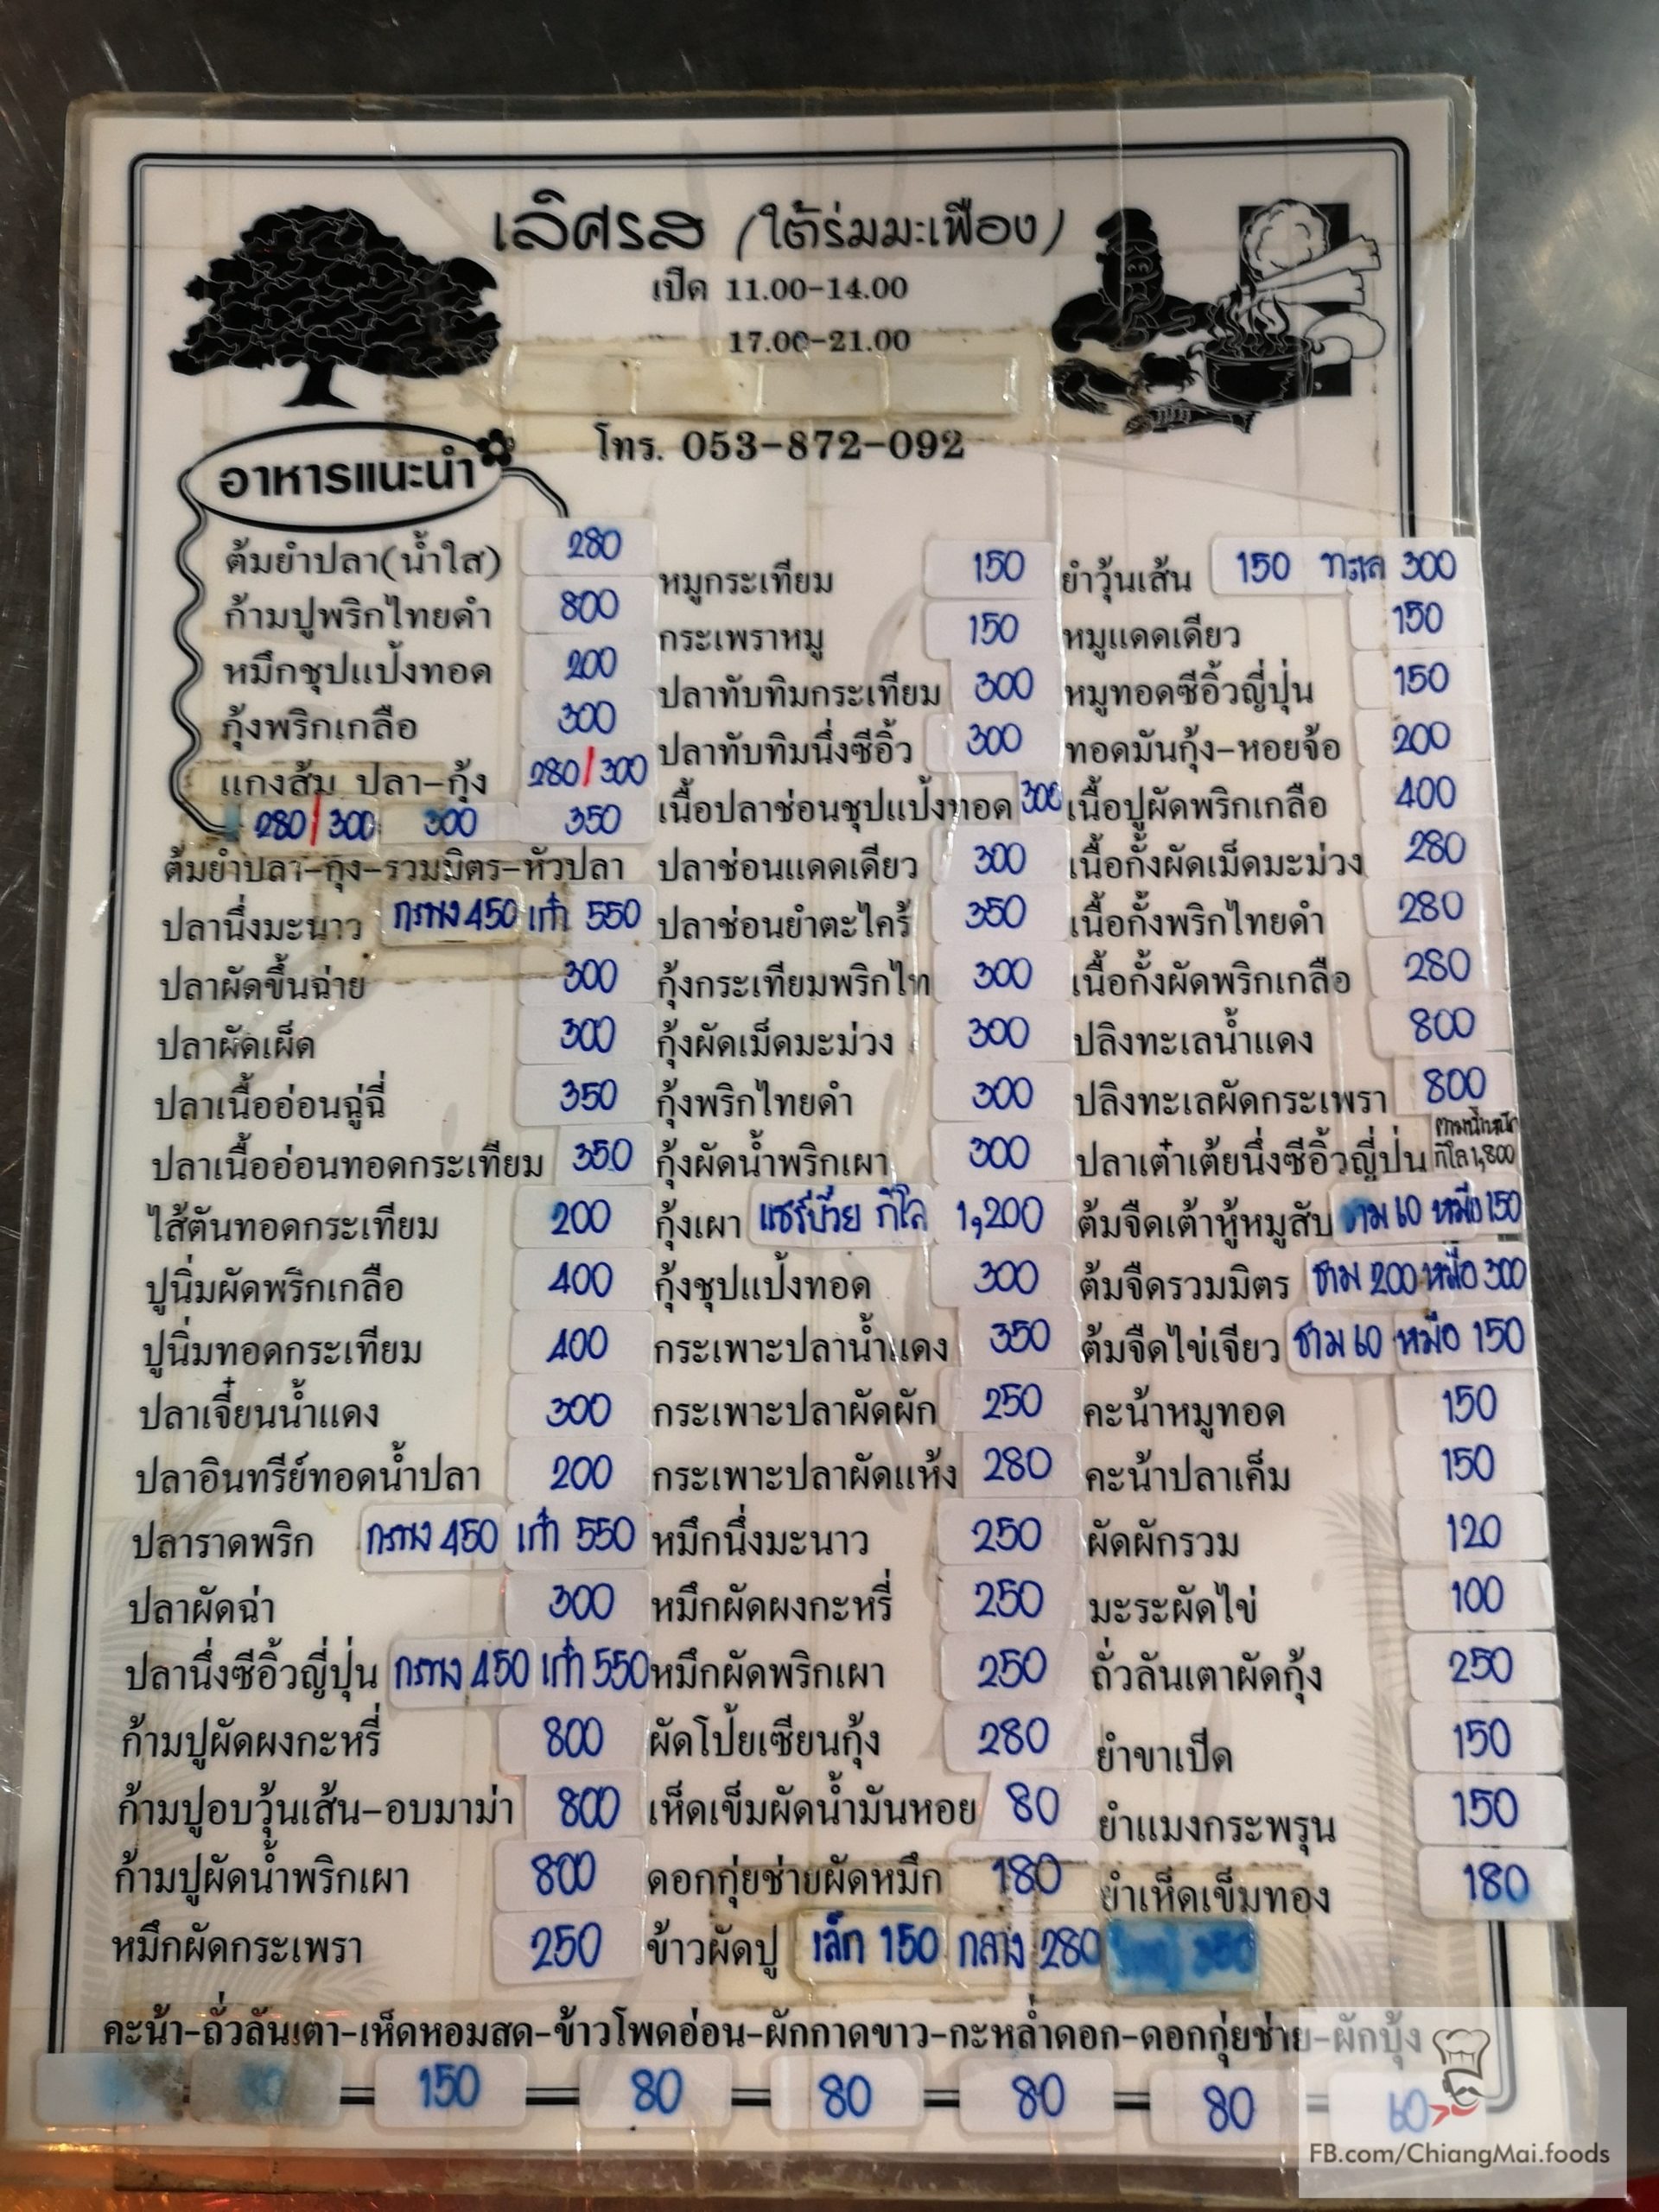 เลิศรส (ใต้ร่มมะเฟือง)
เปิด 11.00-14.00
17.00-21.00
โทร. 053-872-092
อาหารแนะนำ
ต้มยำปลา(น้ำใส) 280
ก้ามปูพริกไทยดำ 800
หมึกชุปแป้งทอด 200
กุ้งพริกเกลือ 300
แกงส้ม ปลา-กุ้ง 280/300
280/300 300 350
ต้มยำปลา-กุ้ง-รวมมิตร-หัวปลา
ปลานึ่งมะนาว กะพง 450 เก๋า 550
ปลาผัดขึ้นฉ่าย 300
ปลาผัดเผ็ด 300
ปลาเนื้ออ่อนฉู่ฉี่ 350
ปลาเนื้ออ่อนทอดกระเทียม 350
ไส้ตันทอดกระเทียม 200
ปูนิ่มผัดพริกเกลือ 400
ปูนิ่มทอดกระเทียม 400
ปลาเจี๋ยนน้ำแดง 300
ปลาอินทรีย์ทอดน้ำปลา 200
ปลาราดพริก กะพง 450 เก๋า 550
ปลาผัดฉ่า 300
ปลานึ่งซีอิ้วญี่ปุ่น กะพง 450 เก๋า 550
ก้ามปูผัดผงกะหรี่ 800
ก้ามปูอบวุ้นเส้น-อบมาม่า 800
ก้ามปูผัดน้ำพริกเผา 800
หมึกผัดกระเพรา 250
หมูกระเทียม 150
กระเพราหมู 150
ปลาทับทิมกระเทียม 300
ปลาทับทิมนึ่งซีอิ้ว 300
เนื้อปลาช่อนชุปแป้งทอด 300
ปลาช่อนแดดเดียว 300
ปลาช่อนยำตะไคร้ 350
กุ้งกระเทียมพริกไท 300
กุ้งผัดเม็ดมะม่วง 300
กุ้งพริกไทยดำ 300
กุ้งผัดน้ำพริกเผา 300
กุ้งเผา แชร์บ๊วย กิโล 1,200
กุ้งชุปแป้งทอด 300
กระเพาะปลาน้ำแดง 350
กระเพาะปลาผัดผัก 250
กระเพาะปลาผัดแห้ง 280
หมึกนึ่งมะนาว 250
หมึกผัดผงกะหรี่ 250
หมึกผัดพริกเผา 250
ผัดโป้ยเซียนกุ้ง 280
เห็ดเข็มผัดน้ำมันหอย 80
ดอกกุ่ยช่ายผัดหมึก 180
ข้าวผัดปู เล็ก 150 กลาง 280 ใหญ่ 350
ยำวุ้นเส้น 150 ทะเล 300
หมูแดดเดียว 150
หมูทอดซีอิ้วญี่ปุ่น 150
ทอดมันกุ้ง-หอยจ้อ 200
เนื้อปูผัดพริกเกลือ 400
เนื้อกั้งผัดเม็ดมะม่วง 280
เนื้อกั้งพริกไทยดำ 280
เนื้อกั้งผัดพริกเกลือ 280
ปลิงทะเลน้ำแดง 800
ปลิงทะเลผัดกระเพรา 800
ปลาเต๋าเต้ยนึ่งซีอิ้วญี่ปุ่น ตามน้ำหนัก
กิโล 1,800
ต้มจืดเต้าหู้หมูสับ ชาม 60 หม้อ 150
ต้มจืดรวมมิตร ชาม 200 หม้อ 300
ต้มจืดไข่เจียว ชาม 60 หม้อ 150
คะน้าหมูทอด 150
คะน้าปลาเค็ม 150
ผัดผักรวม 120
มะระผัดไข่ 100
ถั่วลันเตาผัดกุ้ง 250
ยำขาเป็ด 150
ยำแมงกระพรุน 150
ยำเห็ดเข็มทอง 180
คะน้า-ถั่วลันเตา-เห็ดหอมสด-ข้าวโพดอ่อน-ผักกาดขาว-กะหล่ำดอก-ดอกกุ่ยช่าย-ผักบุ้ง
150 80 80 80 80 60
FB.com/ChiangMai.foods